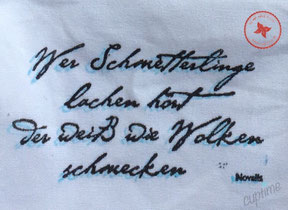 Wer Schmetterlinge
lachen hört
der weiß wie Wolken
schmecken
Novalis
cuptime